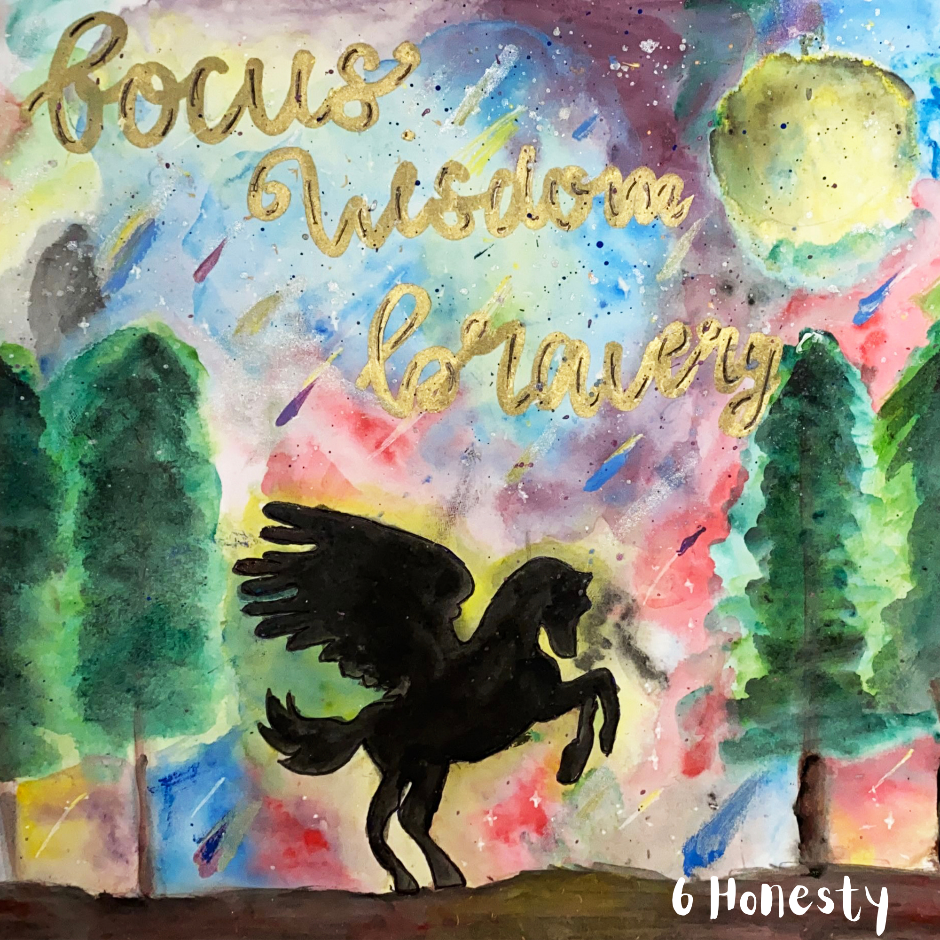 focus
Wisdom
bravery
6 Honesty